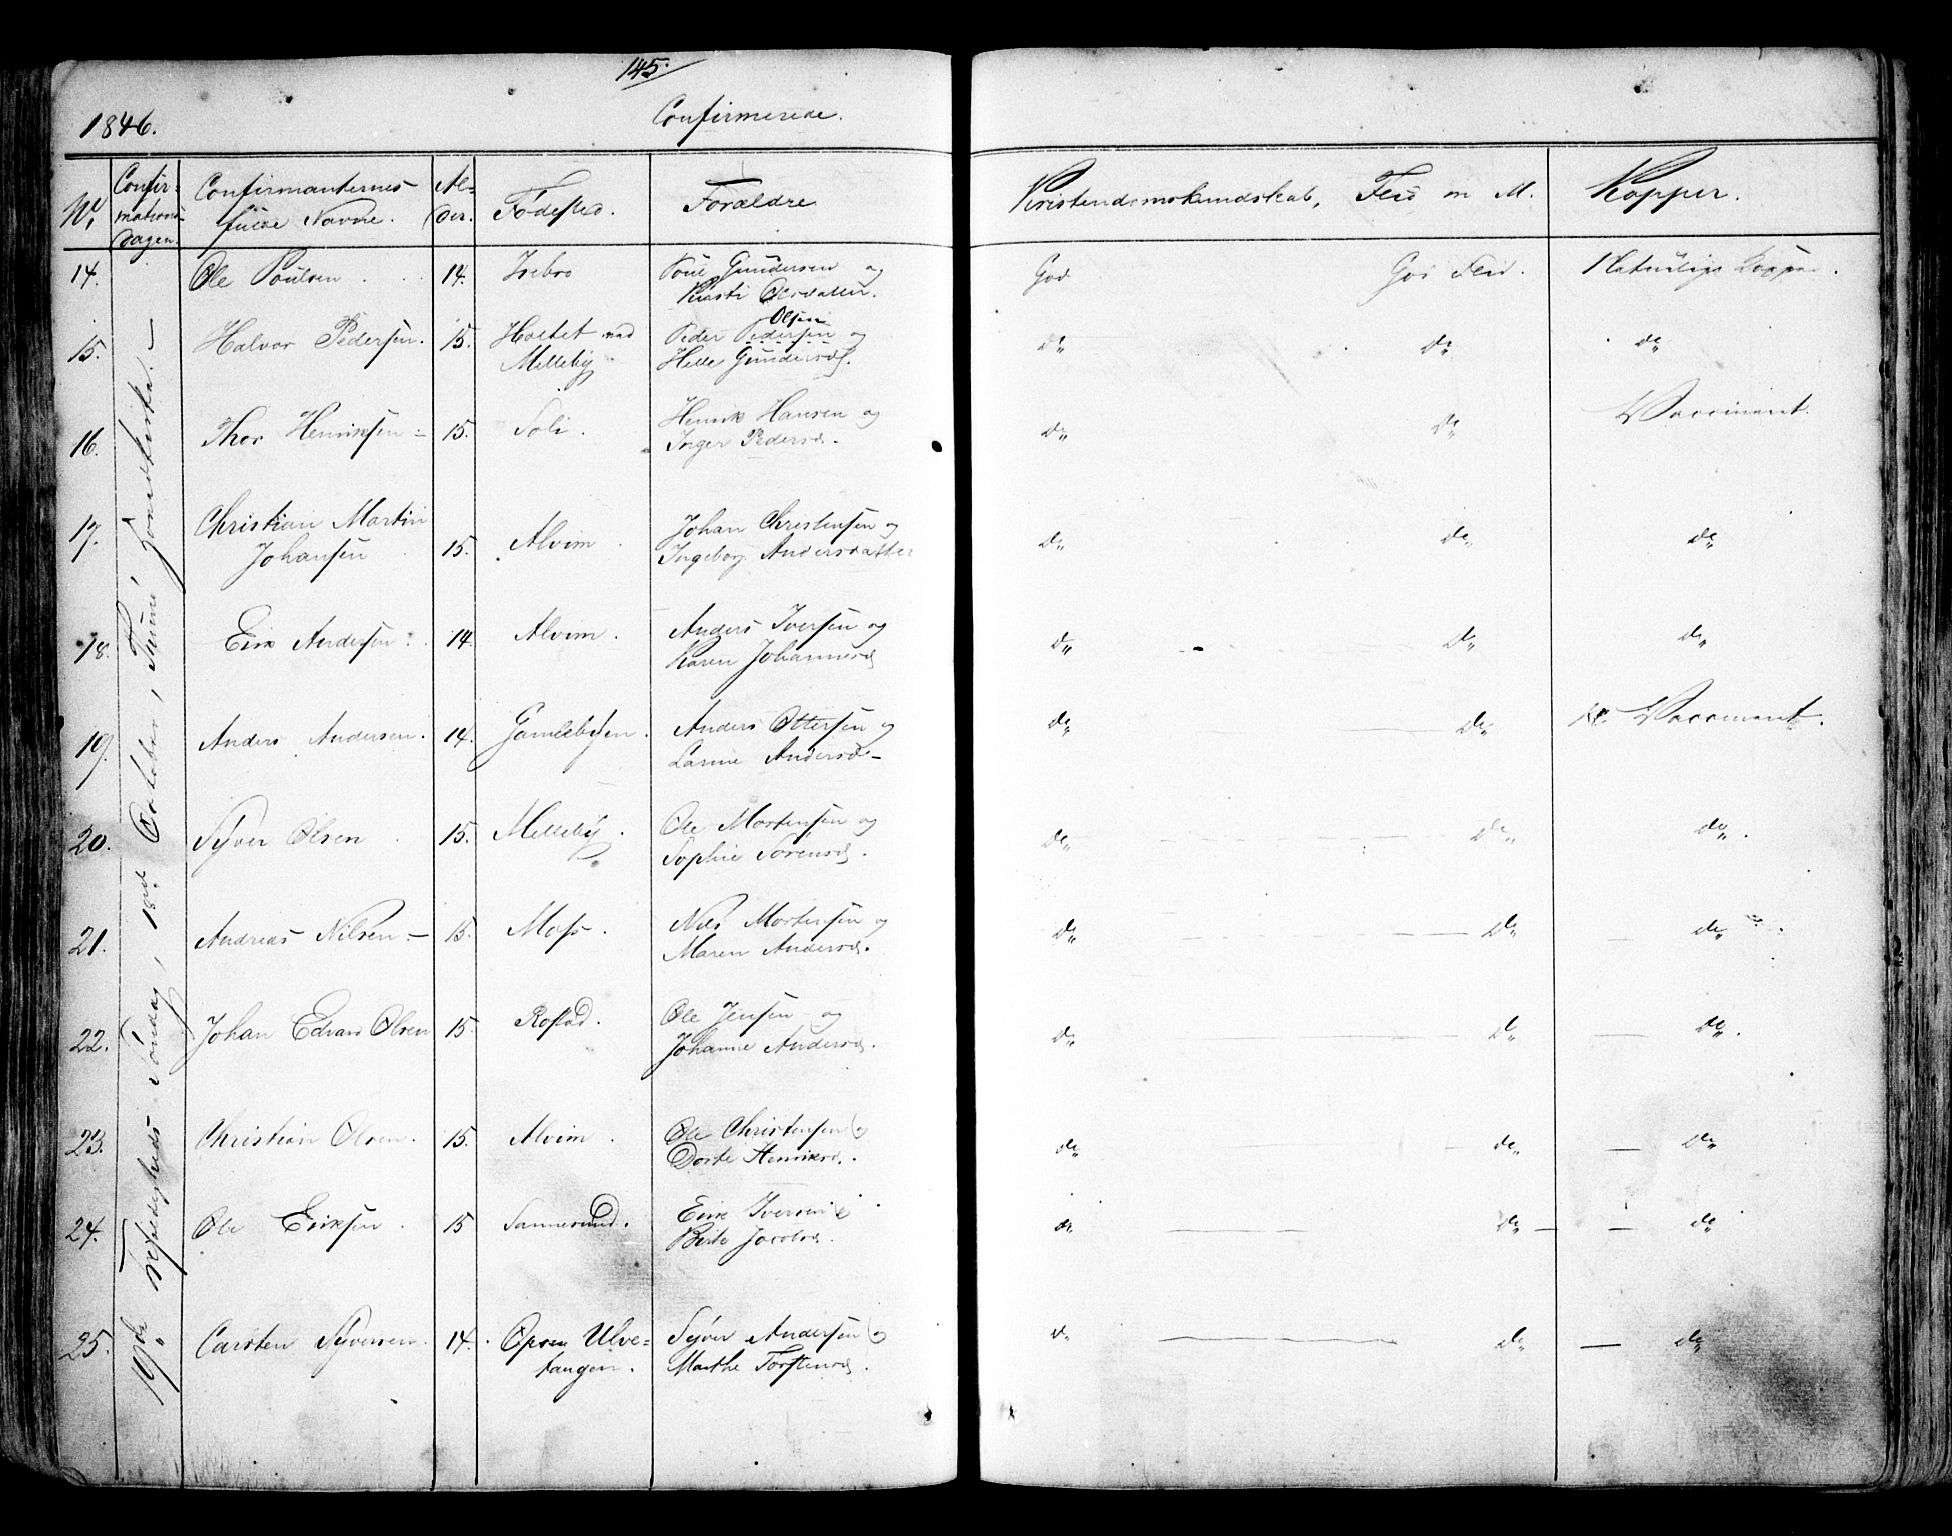 145.
1846. Confirmerede.
No. Confirmationsdagen. Confirmanternes fulde Navne. Alder. Fødested. Forældre Kristendomskundskab, Flid m M. Kopper.
19de Trefoldigheds Søndag, 18de October, Thunø Hovedkirke. —
14. Ole Poulsen 14. Isebro Poul Gundersen og God God Flid. Naturlige Kopper.
Kirsti Olsdatter.
15. Halvor Pedersen. 15. Holtet ved Peder Pedersen Olsen og do do do
Melleby Helle Gundersd.
16. Thor Henriksen 15. Soli. Henrik Hansen og do do Vaccineret.
Inger Pedersd.
17. Christian Martin Johan Christensen og
Johansen 15. Alvim Ingeborg Andersdatter do do do
18. Erik Andersen 14. Alvim. Anders Iversen og do do do
Karen Johannesd
19. Anders Andersen. 14. Gamlebyen. Anders Ottersen og do do Vaccineret.
Larine Andersd
20. Syver Olsen 15. Melleby. Ole Mortensen og do do do
Sophie Sørensd.
21. Andreas Nilsen 15. Moss. Nils Mortensen og do do do
Maren Andersd.
22. Johan Edvard Olsen 15. Rostad. Ole Jensen og do do do.
Johanne Andersd.
23. Christian Olsen. 15. Alvim. Ole Christensen og do do do
Dorte Henriksd.
24. Ole Eriksen 15 Sannesund. Erik Iversen & do do do
Berte Jacobsd.
25. Carsten Syversen. 14. Opsen Ulve- Syver Andersen og do do do
tangen. Marthe Torstensd.